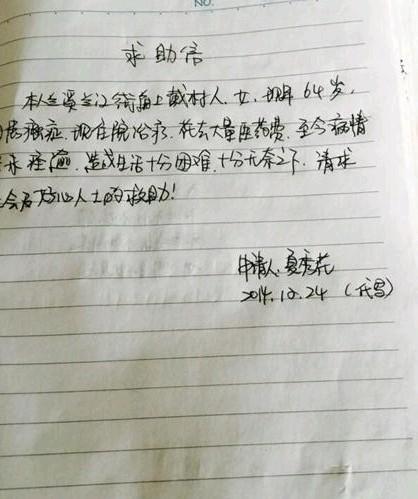 NO.
求助信
本人兰溪兰江街角上戴村人,女,现年64岁,
因患癌症,现住院治疗,花去大量医药费,至今病情
未痊愈,造成生活十分困难,十分无奈之下,请求
社会各好心人士的救助!
申请人:夏秀花
2014.12.24(代写)